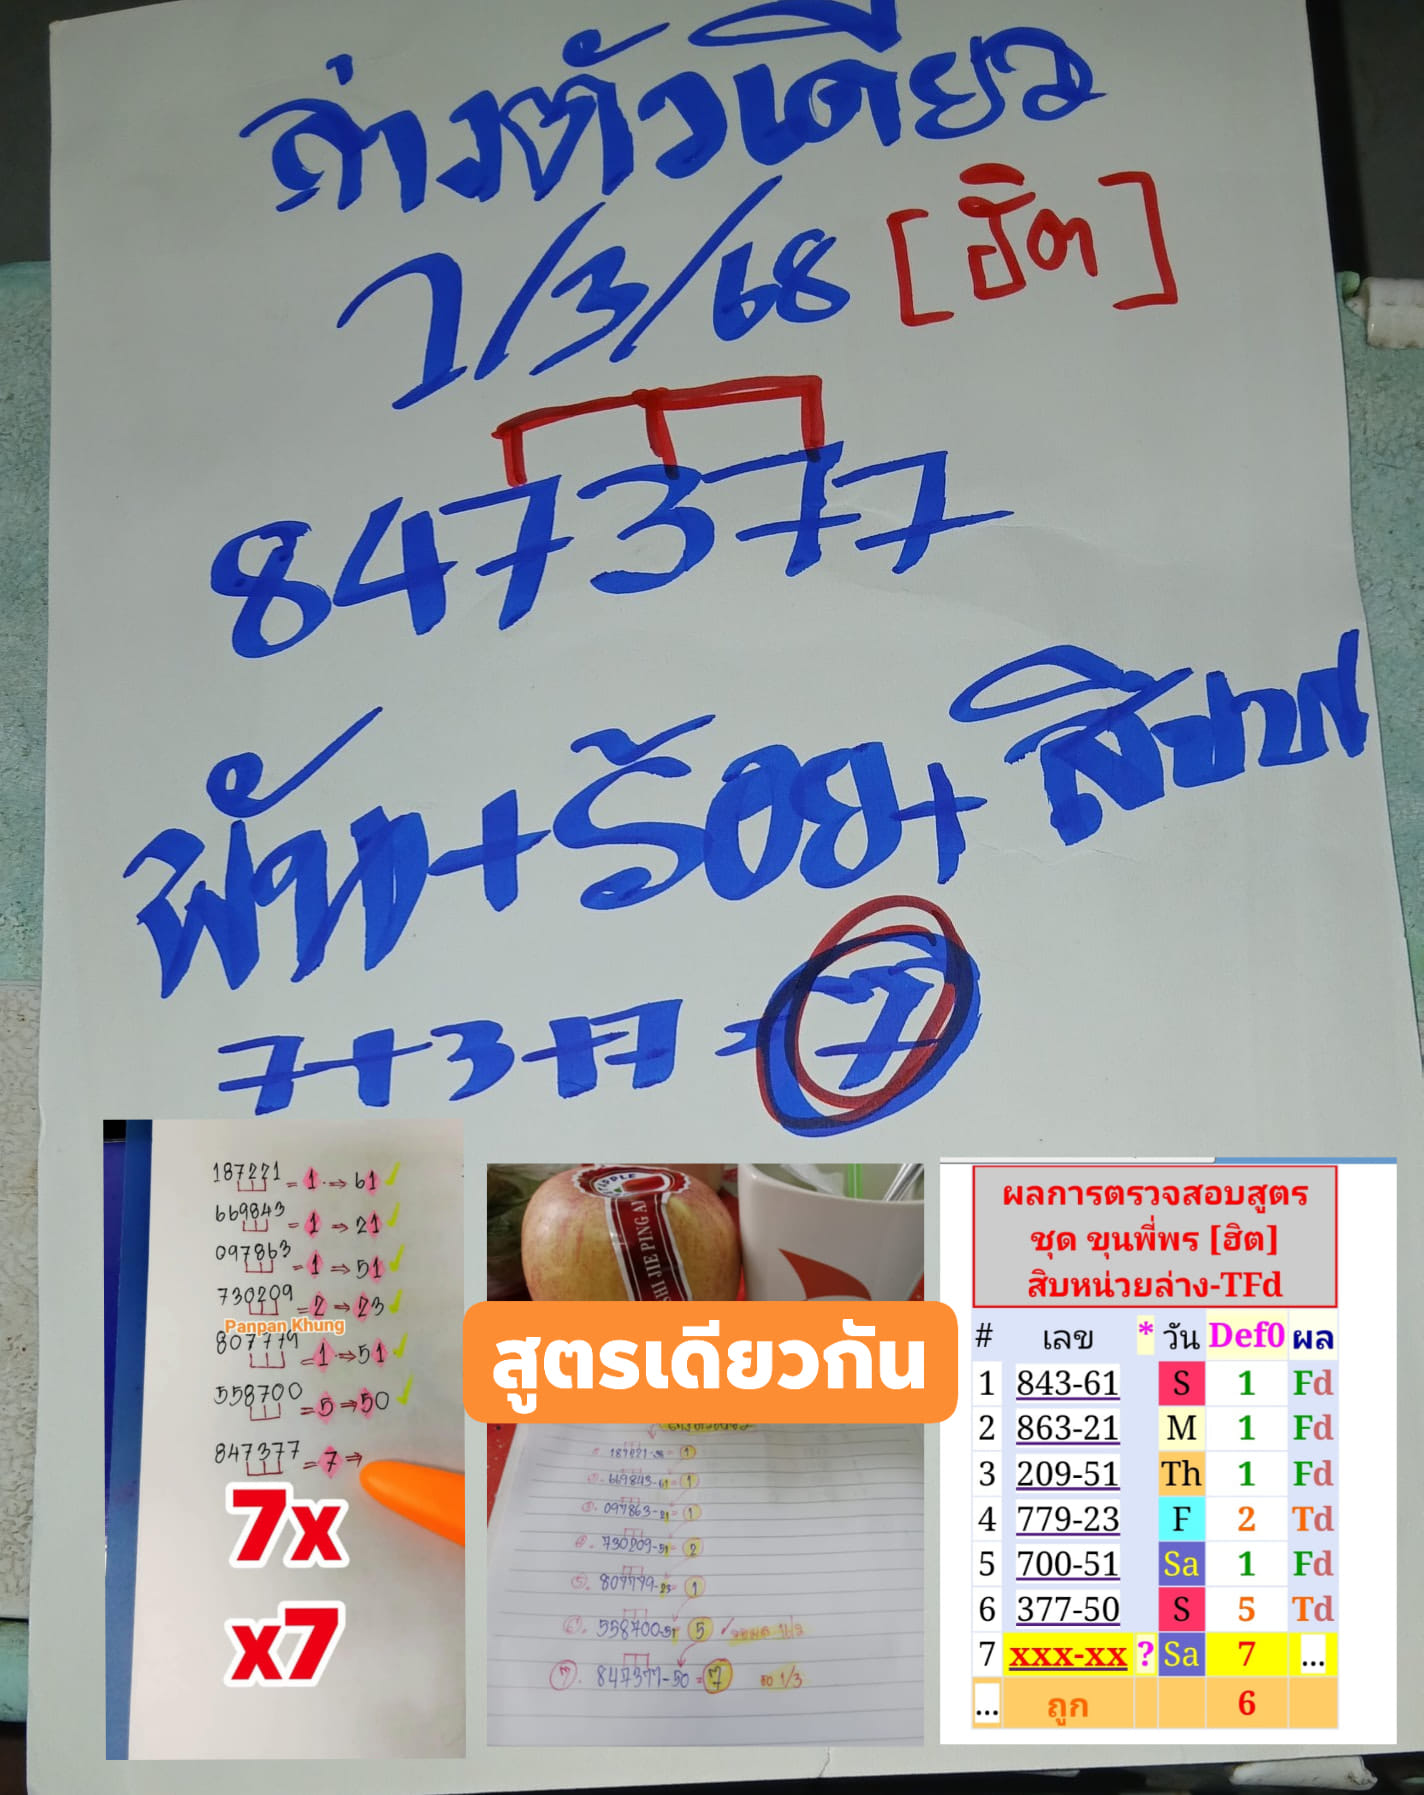 ล่างตัวเดียว
1/3/68 [ฮิต]
847377
พัน+ร้อย+สิบบน
7+3+7=7
187221 = 1 → 61
669843 = 1 → 21
097863 = 1 → 51
730209 = 2 → 23
Panpan Khung
807779 = 1 → 51
558700 = 5 → 50
847377 = 7 ⇒
7x
x7
APPLE
SHI JIE PING AN
สูตรเดียวกัน
187221-38 = 1
669843-61 = 1
097863-21 = 1
730209-51 = 2
5. 807779-23 = 1
558700-51 = 5
7. 847377-50 = 7 ขอ 1/3
ผลการตรวจสอบสูตร
ชุด ขุนพี่พร [ฮิต]
สิบหน่วยล่าง-TFd
# เลข * วัน Def0 ผล
1 843-61 S 1 Fd
2 863-21 M 1 Fd
3 209-51 Th 1 Fd
4 779-23 F 2 Td
5 700-51 Sa 1 Fd
6 377-50 S 5 Td
7 xxx-xx ? Sa 7 ...
... ถูก 6